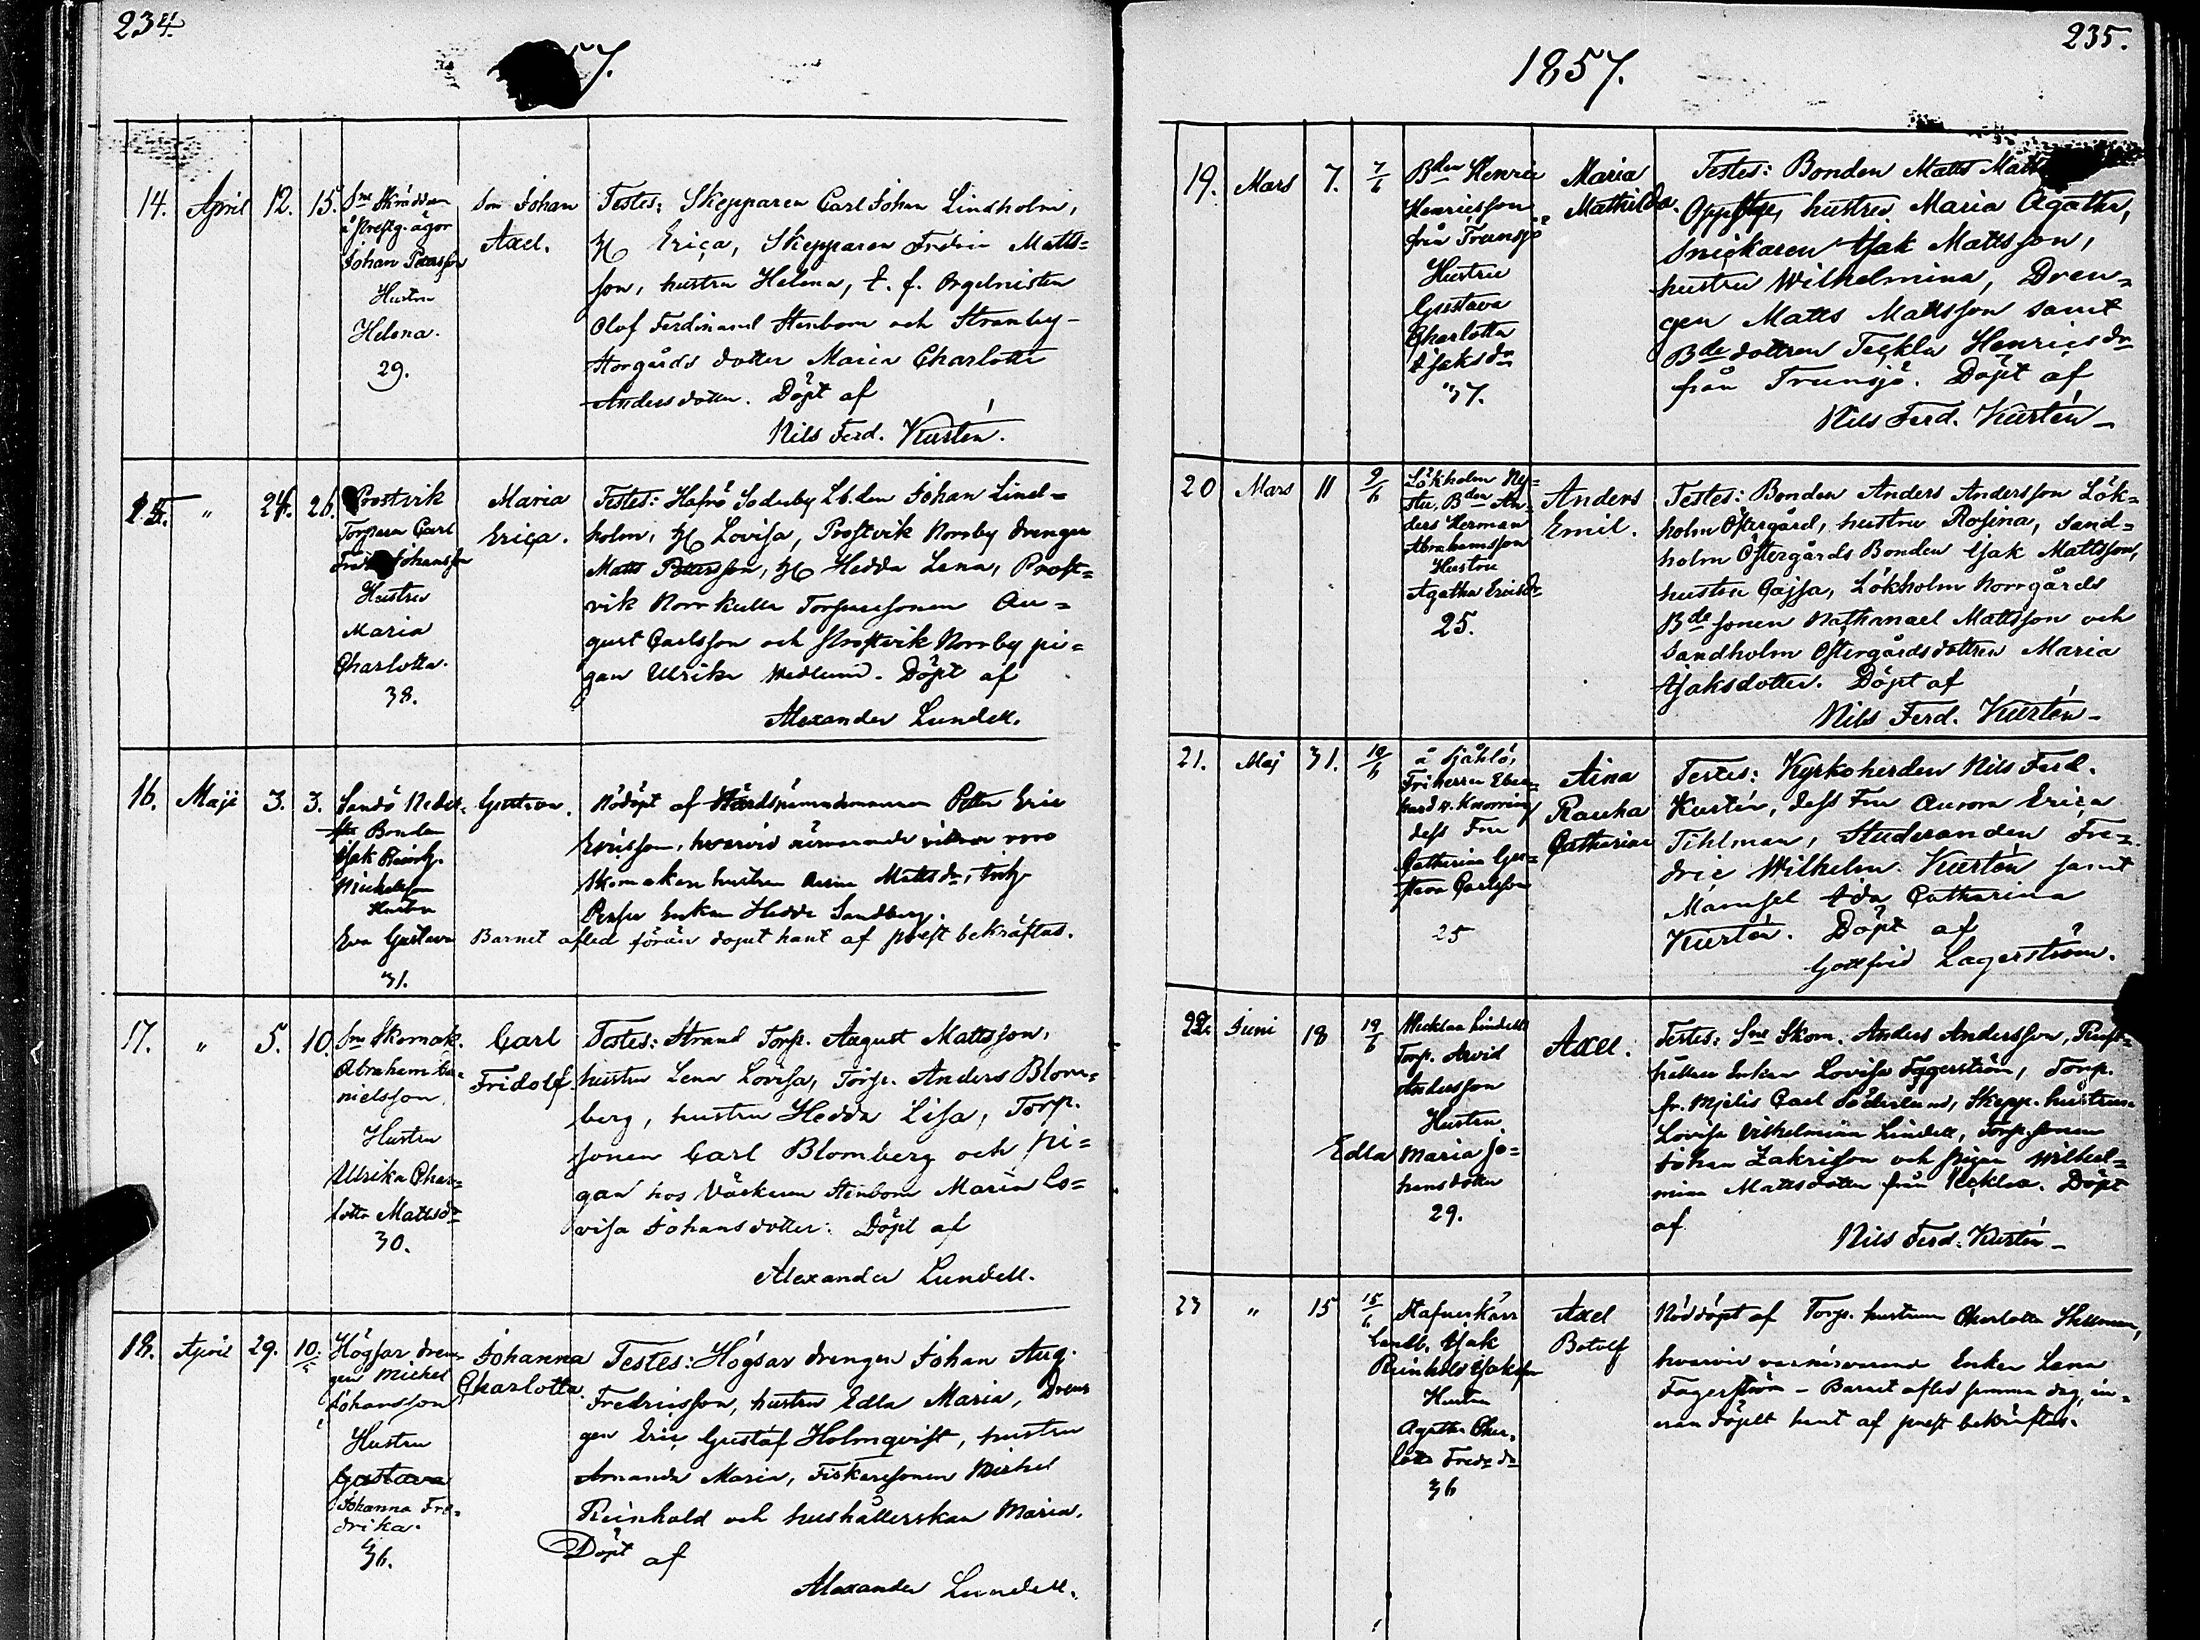 234.
57.
14. April 12. 15.
Sne Skräddaren
å Prestg. ägor
Johan Petersson
Hustru
Helena.
29.
Son Johan
Axel.
Testes: Skepparen Carl Johan Lindholm,
H Erica, Skepparen Fredric Matts=
son, hustru Helena, t. f. Orgelnisten
Olof Ferdinand Stenbom och Stranby-
Storgårds dotter Maria Charlotta
Andersdotter. Döpt af
Nils Ferd. Kurtén.
15. " 24. 26.
Prostvik
Torparen Carl
Johansson
Hustru
Maria
Charlotta.
38.
Maria
Erica.
Testes: Söderby Lb.den Johan Lind=
holm, H Lovisa, Prostvik Norrby drengen
Matts Petersson, H Hedda Lena, Prost=
vik Norrkulla Torparesonen Au=
gust Carlsson och Prostvik Norrby pi=
gan Ulrika Hedlund. Döpt af
Alexander Lundell.
16. Maji 3. 3.
Sandö Neder-
Bonden
Isak Reinh.
Michelsson
Hustru
Eva Gustava
31.
Gustava.
Nödöpt af Petter Eric
Ericsson, hvarvid närvarande voro
Skomakare hustrun Anna Mattsdr,
Enkan Hedda Sandberg.
Barnet afled förän dopet hant af prest bekräftas.
17. " 5. 10.
Sne Skomak.
Abraham Da=
nielsson
Hustru
Ulrika Char=
lotta Mattsdr
30.
Carl
Fridolf.
Testes: Strand Torp. August Mattsson,
hustru Lena Lovisa, Torp. Anders Blom=
berg, hustru Hedda Lisa, Torp.
sonen Carl Blomberg och pi=
gan hos Väckaren Stenbom Maria Lo=
visa Johansdotter. Döpt af
Alexander Lundell.
18. April 29. 10.
Högsar dren-
gen Michel
Johansson
Hustru
Gustava
Johanna Fre-
drika.
36.
Johanna
Charlotta.
Testes: Högsar drengen Johan Aug.
Fredricsson, hustru Edla Maria, Dren
gen Eric Gustaf Holmqvist, hustru
Amanda Maria, Fiskaresonen Michel
Reinhold och hushållerskan Maria.
Döpt af
Alexander Lundell.
235.
1857.
19. Mars 7. 7/6
Bden Henric
Henricsson
från Trunsjö
Hustru
Gustava
Charlotta
Isaksdr
37.
Maria
Mathilda.
Testes: Bonden Matts
hustru Maria Agatha,
Snickaren Isak Mattsson,
hustru Wilhelmina, Dren=
gen Matts Mattsson samt
Bde dottren Teckla Henricsdr
från Trunsjö. Döpt af
Nils Ferd. Kurtén
20 Mars 11 9/6
Lökholm Ny-
stu, Bden An-
ders Herman
Abrahamsson
Hustru
Agatha Ericsdr
25.
Anders
Emil.
Testes: Bonden Anders Andersson Lök=
holm Östergård, hustru Rosina, Sand=
holm Östergårds Bonden Isak Mattsson,
hustru Cajsa, Lökholm Norrgårds
Bde sonen Nathanael Mattsson och
Sandholm Östergårdsdottren Maria
Isaksdotter. Döpt af
Nils Ferd. Kurtén
21. Maj 31. 10/6
å Själö,
Friherren Eber-
hard v. Knorring
dess Fru
Catharina Gus=
tava Carlsson
25
Aina
Rauha
Catharina
Testes: Kyrkoherden Nils Ferd.
Kurtén, dess Fru Aurora Erica
Tihlman, Studeranden Fre-
dric Wilhelm Kurtén samt
Mamsel Ida Catharina
Kurtén. Döpt af
Gottfrid Lagerström.
22. Juni 18 19/6
Lindell
Torp. Arvid
Andersson
Hustru
Edla Maria Jo=
hansdotter
29.
Axel.
Testes: Sne Skom. Anders Andersson, Rust=
hållare Enkan Lovisa Fagerström, Torp.
fr. Mjelis Carl Söderlund, Skepp. hustrun
Lovisa Vilhelmina Lindell, Torp. sonen
Johan Zakrisson och pigan Wilhel=
mina Mattsdotter från Döpt
af
Nils Ferd. Kurtén
23 " 15 15/6
Landb. Isak
Reinhold Isaksson
Hustru
Agatha Char-
lotta Fredr. dr
36
Axel
Botolf
Nöddöpt af Torp. hustrun Charlotta Hellman,
hvarvid var närvarande Enkan Lena
Fagerström - Barnet afled samma dag, in-
nan döpelt hant af prest bekräftas.